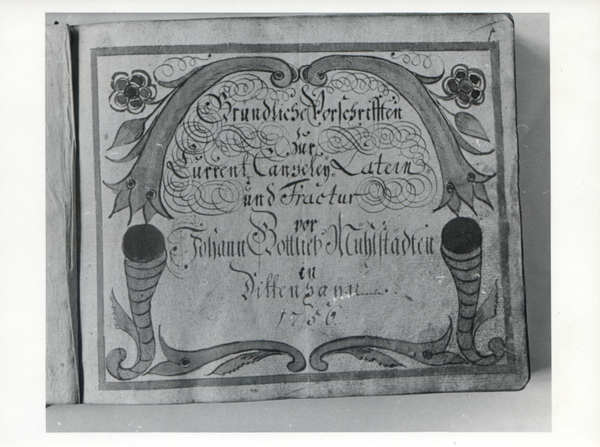 Grundliche Vorschrifften
zur
Current, Canzeley, Latein
und Fractur
vor
Johann Gottlieb Mühlstädten
in
1756.